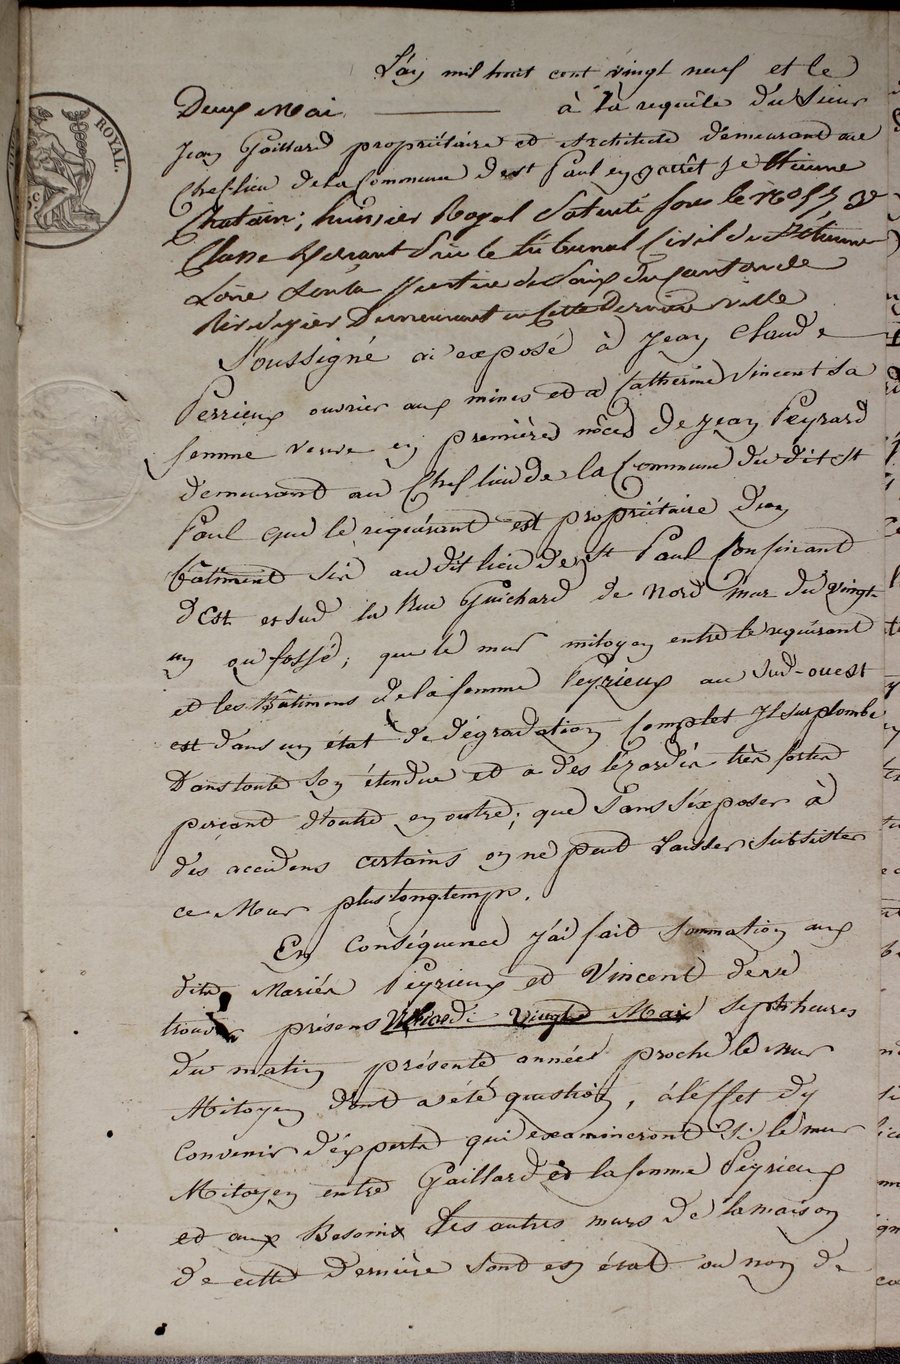 L'an mil huit cent vingt neuf et le
Deux Mai, à la requête du Sieur
Jean Gaillard propriétaire et Architecte demeurant au
Cheflieu de la Commune de st Paul en Jarrêt Je Etienne
Chatain; huissier Royal Patenté sous le No 55 3e
Classe Exerçant Près le tribunal Civil de St Etienne
Loire Soula Justice de Paix du Canton de
Rivedegier Demeurant en Cette Dernière ville
Soussigné ai exposé à Jean Claude
Perrieux ouvrier aux mines et à Catherine Vincent sa
femme veuve en première nôces de Jean Peyrard
demeurant au Chef lieu de la Commune du dit st
Paul que le requérant est propriétaire d'un
bâtiment sis au dit lieu de st Paul Confinant
d'Est et sud la Rue Guichard de Nord mur du vingt-
un ou fossé; que le mur mitoyen entre le requérant
et les Bâtimens de la femme Peyrieux au Sud-ouest
est dans un état de dégradation Complet Il surplombe
Dans toute son étendue et a des lézardes très fortes
perçant d'outre en outre; que sans s'éxposer à
des accidens certains on ne peut Laisser Subsister
ce Mur plus longtemps.
En Conséquence j'ai fait Sommation aux
dits Mariés Peyrieux et Vincent de se
trouver présens Mai sept heures
du matin présente année proche le mur
Mitoyen dont a été question, à l'effet d'y
Convenir d'éxperts qui éxamineront Si le mur
Mitoyen entre Gaillard et la femme Peyrieux
et aux Besoins les autres murs de la maison
de cette dernière Sont en état ou non de
ROYAL.